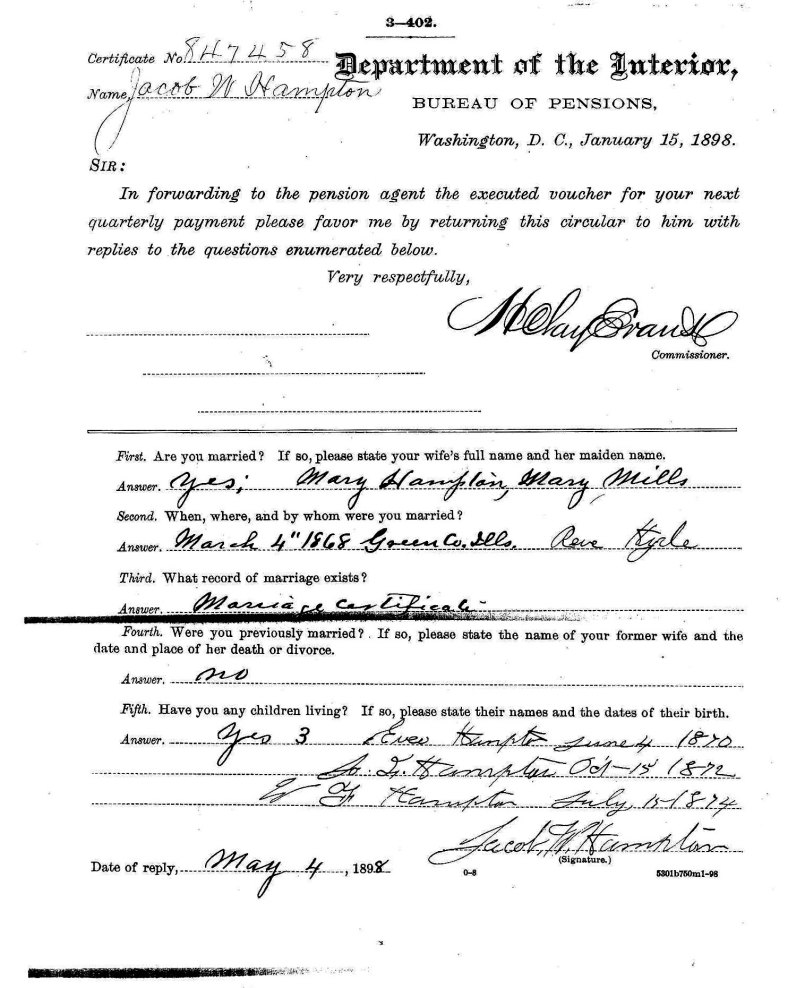 3—402.
Certificate No 847458
Department of the Interior,
Name, Jacob W Hampton
BUREAU OF PENSIONS,
Washington, D. C., January 15, 1898.
SIR:
In forwarding to the pension agent the executed voucher for your next
quarterly payment please favor me by returning this circular to him with
replies to the questions enumerated below.
Very respectfully,
H Clay Evans
Commissioner.
First. Are you married? If so, please state your wife's full name and her maiden name.
Answer. Yes; Mary Hampton, Mary Mills
Second. When, where, and by whom were you married?
Answer. March 4" 1868 Green Co. Ills. Rev
Third. What record of marriage exists?
Answer. Marriage Certificate
Fourth. Were you previously married? If so, please state the name of your former wife and the
date and place of her death or divorce.
Answer. no
Fifth. Have you any children living? If so, please state their names and the dates of their birth.
Answer. Yes 3 Hampton June 4 1870
Hampton Oct-15 1872
Hampton July 15-1874
Jacob W. Hampton
(Signature.)
Date of reply, May 4, 1898
0-8
5301b750m1-98